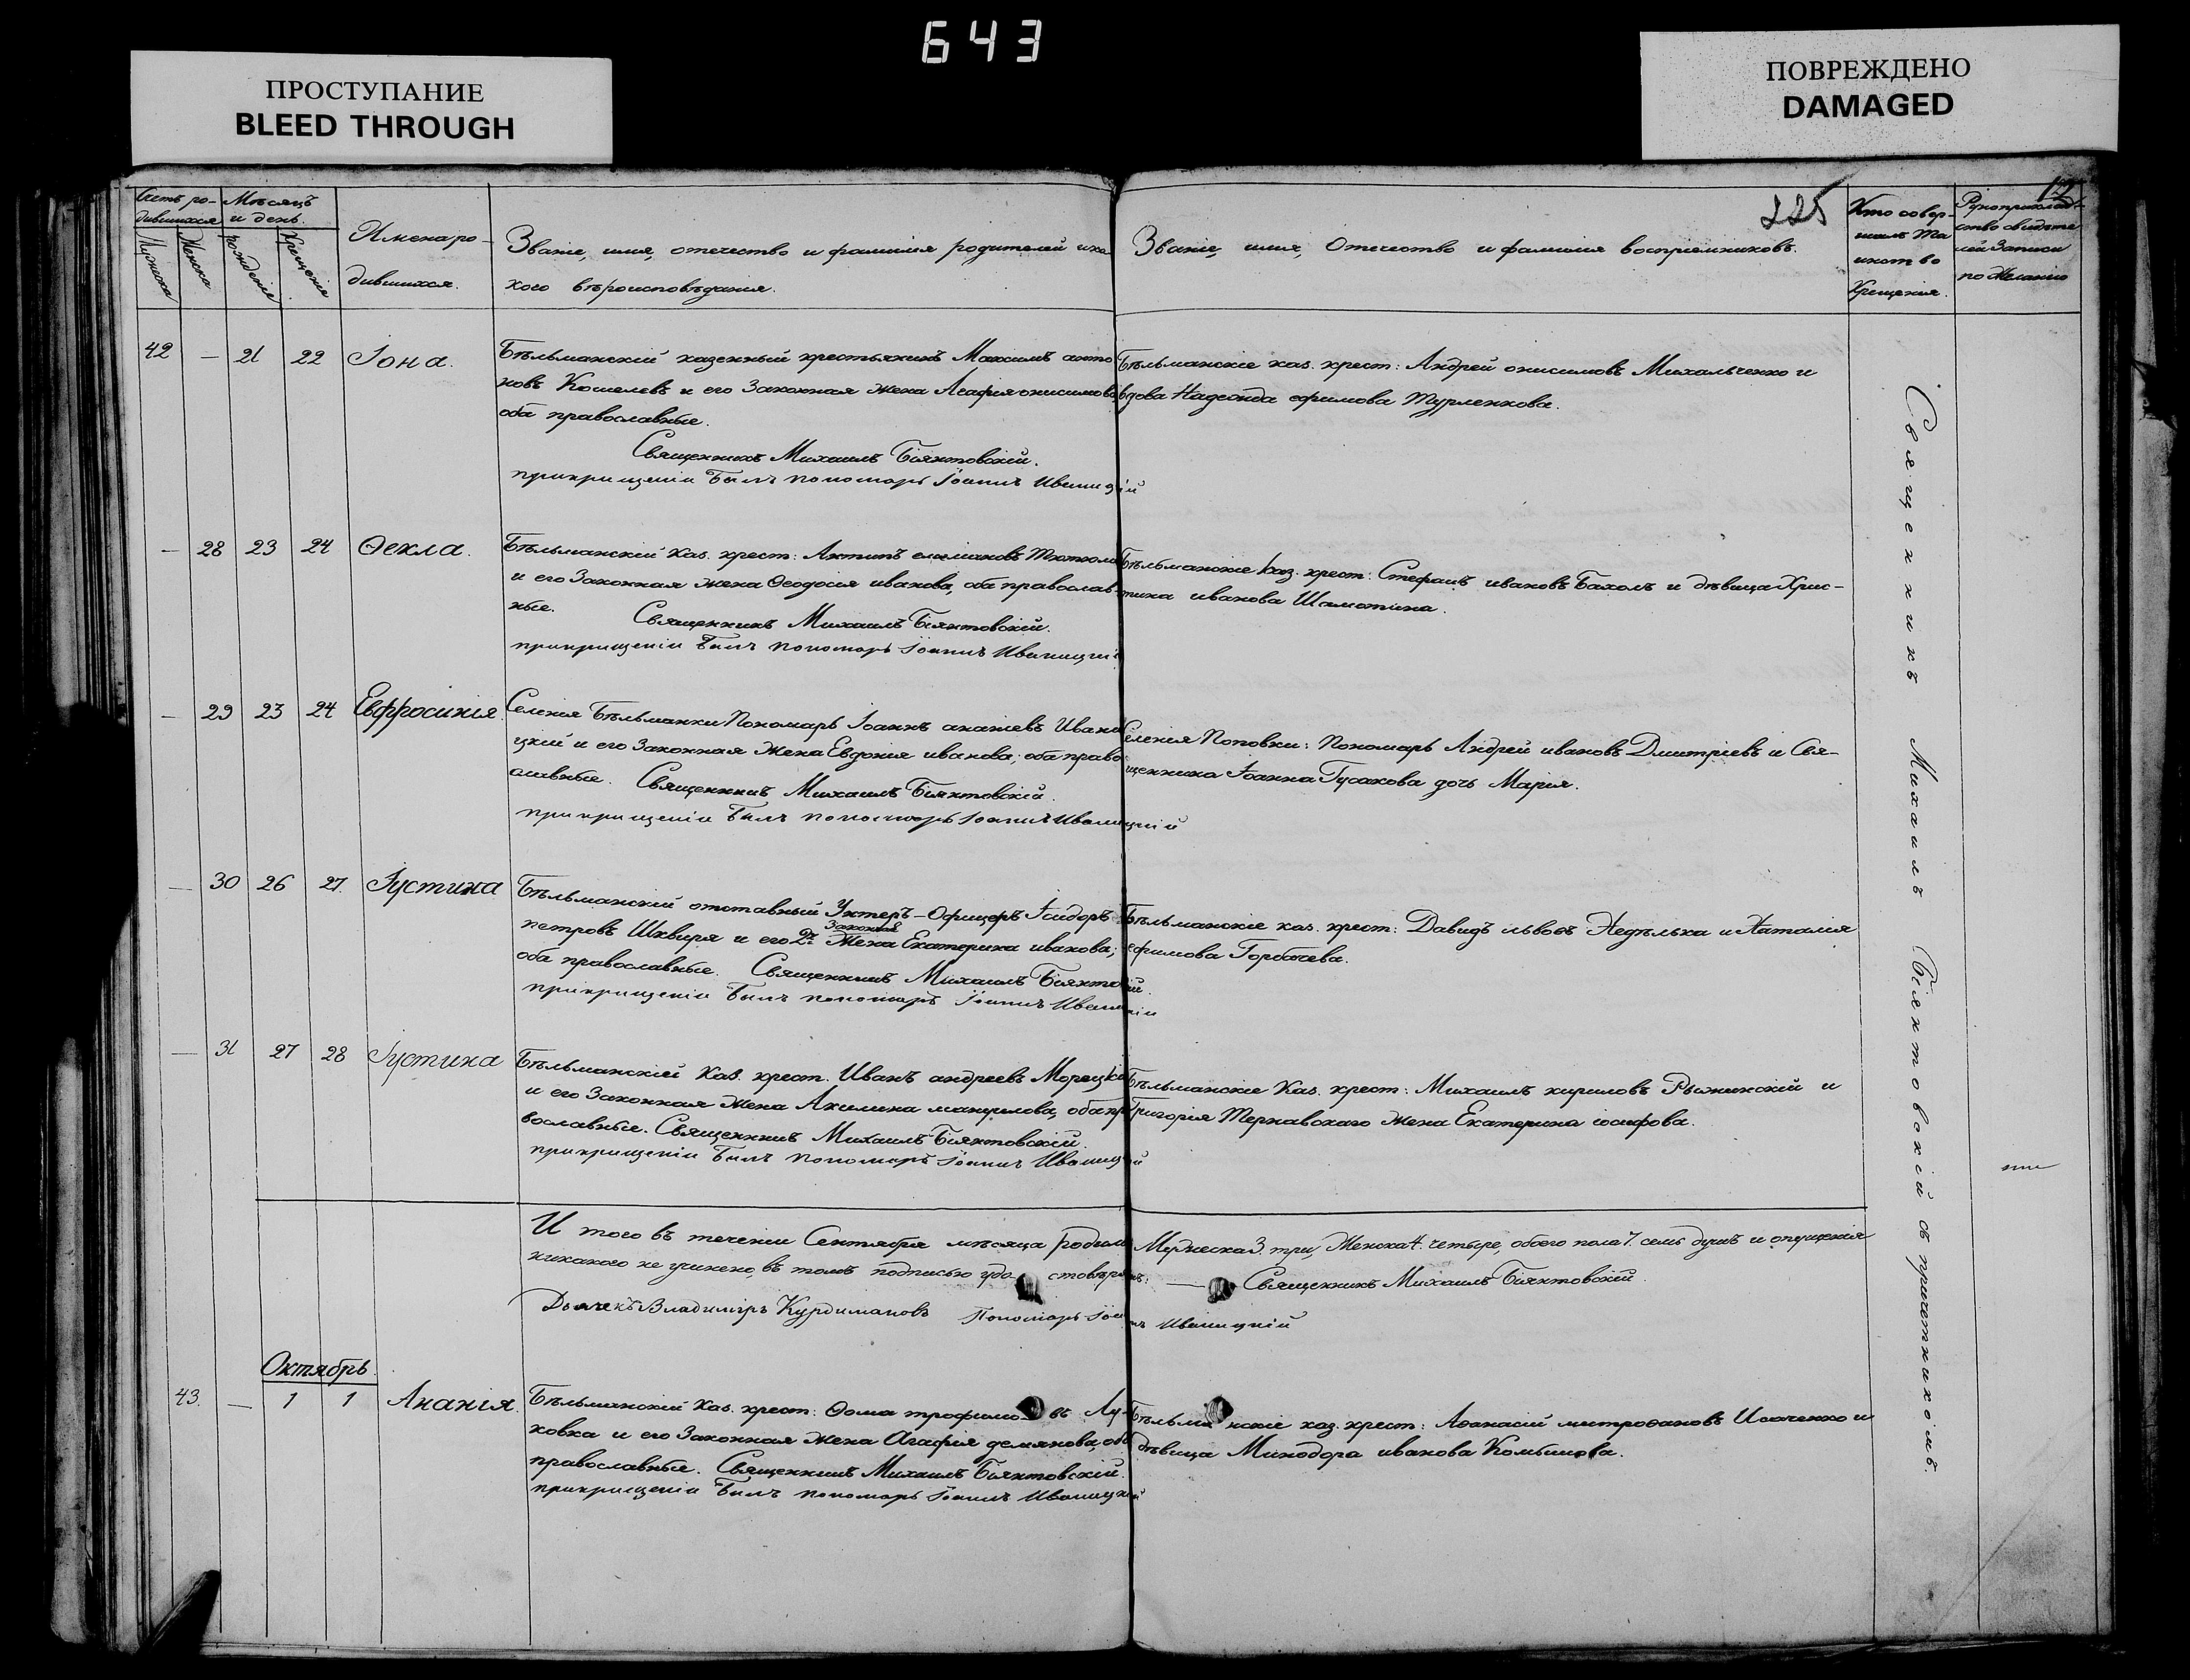 643
ПРОСТУПАНИЕ
BLEED THROUGH
ПОВРЕЖДЕНО
DAMAGED
12
225
Счетъ ро-
дившихся
Мужеска
Женска
Мѣсяцъ
и день.
рожденія
Крещенія
Имена ро-
дившихся.
Званіе, имя, отечество и фамилія родителей и ка
кого вѣроисповѣданія.
Званіе, имя, Отечество и фамилія воспріемниковъ.
Кто совер-
шалъ Та
инство
Крещенія.
Рукоприклад-
ство свидѣте
лей Записи
по Желанію
42 — 21 22 Іона.
Бѣльманскій казенный крестьянинъ Максимъ анто
новъ Кошелевъ и его Законная жена Агафія онисимова,
оба православные.
Священникъ Михаилъ Біянтовскій.
прикрищеніи Былъ пономарь Іоаннъ Иваницкій
Бѣльманскіе каз. крест: Андрей онисимовъ Михальченко и
вдова Надежда ефимова Турленкова.
— 28 23 24 Ѳекла.
Бѣльманскій Каз. крест: Антипъ
и его Законная жена Ѳеодосія иванова, оба православ-
ные. Священникъ Михаилъ Біянтовскій.
прикрищеніи Былъ пономарь Іоаннъ Иваницкій
Бѣльманскіе каз. крест: Стефанъ ивановъ Бахолъ и дѣвица Хрис-
тина иванова Шамотина.
— 29 23 24 Евфросинія.
Селенія Бѣльманки Пономарь Іоаннъ ананіевъ Ивани
цкій и его Законная Жена Евдокія иванова, оба право
славные. Священникъ Михаилъ Біянтовскій.
прикрищеніи Былъ пономарь Іоаннъ Иваницкій
Селенія Поповки: Пономарь Андрей ивановъ Дмитріевъ и Свя-
щенника Іоанна Гусакова дочь Марія.
— 30 26 27. Іустина
Бѣльманскій отставный Унтеръ-Офицеръ Ісидоръ
петровъ Шквиря и его 2я Законная Жена Екатерина иванова;
оба православные. Священникъ Михаилъ Біянтовскій.
прикрищеніи Былъ пономарь Іоаннъ Иваницкій
Бѣльманскіе каз. крест: Давидъ львовъ Недѣлька и Наталія
ефимова Горбачева.
— 31 27 28 Іустина
Бѣльманскій Каз. крест. Иванъ андреевъ Морецкій
и его Законная Жена Акилина мануилова, оба пра
вославные. Священникъ Михаилъ Біянтовскій.
прикрищеніи Былъ пономарь Іоаннъ Иваницкій
Бѣльманскіе Каз. крест: Михаилъ кириловъ Рыжинскій и
Григорія Тернавскаго жена Екатерина іосифова.
И того въ теченіи Сентября мѣсяца родил
никакого не учинено, въ томъ подписью удостовѣря
Мужеска 3. три, Женска 4. четыре, обоего пола 7. семь душъ и опущенія
Священникъ Михаилъ Біянтовскій.
Дьячекъ Владиміръ Курдимановъ Пономарь Іоаннъ Иваницкій
Октябрь.
43. — 1 1 Ананія.
Бѣльманскій Каз. крест: Ѳома трофимовъ Лу-
ковка и его Законная жена Агафія демянова, оба
православные. Священникъ Михаилъ Біянтовскій.
прикрищеніи Былъ пономарь Іоаннъ Иваницкій
Бѣльманскіе каз. крест: Аѳанасій митрофановъ Исаченко и
дѣвица Минодора иванова Комышова.
Священникъ Михаилъ Біянтовскій съ причетникомъ.